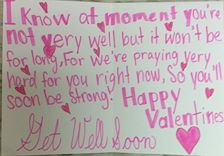 I Know at moment you're
not very well but it won't be
for long, For we're praying very
hard for you right now, So you'll
soon be strong! Happy
Valentines
Get Well Soon